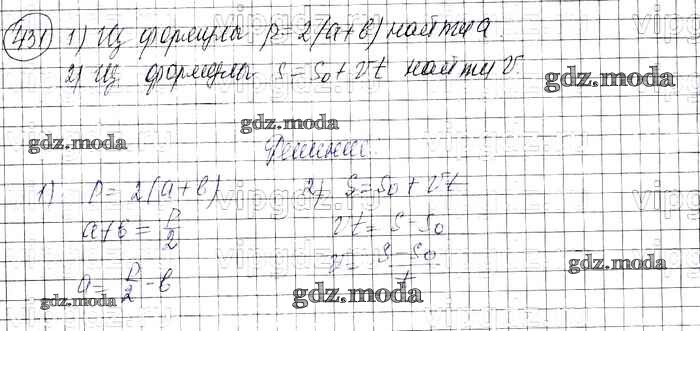 431 1) Из формулы p = 2(a+b) найти a
2) Из формулы s = s₀ + vt найти v
gdz.moda
gdz.moda
gdz.moda
Решение
1) p = 2(a+b) 2) s = s₀ + vt
a+b = p/2 vt = s - s₀
a = p/2 - b v = (s - s₀)/t
gdz.moda
gdz.moda
gdz.moda